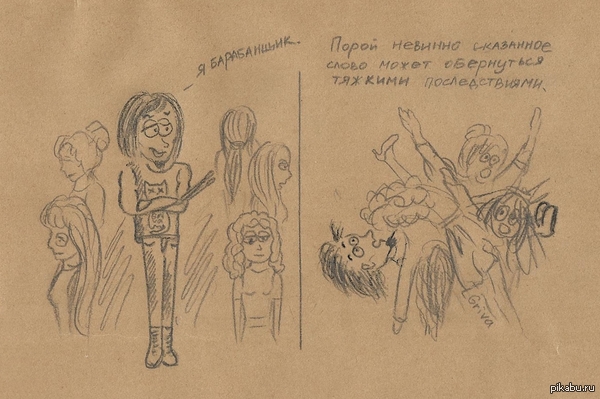 Я БАРАБАНЩИК.
Порой невинно сказанное
слово может обернуться
тяжкими последствиями.
Griva
pikabu.ru